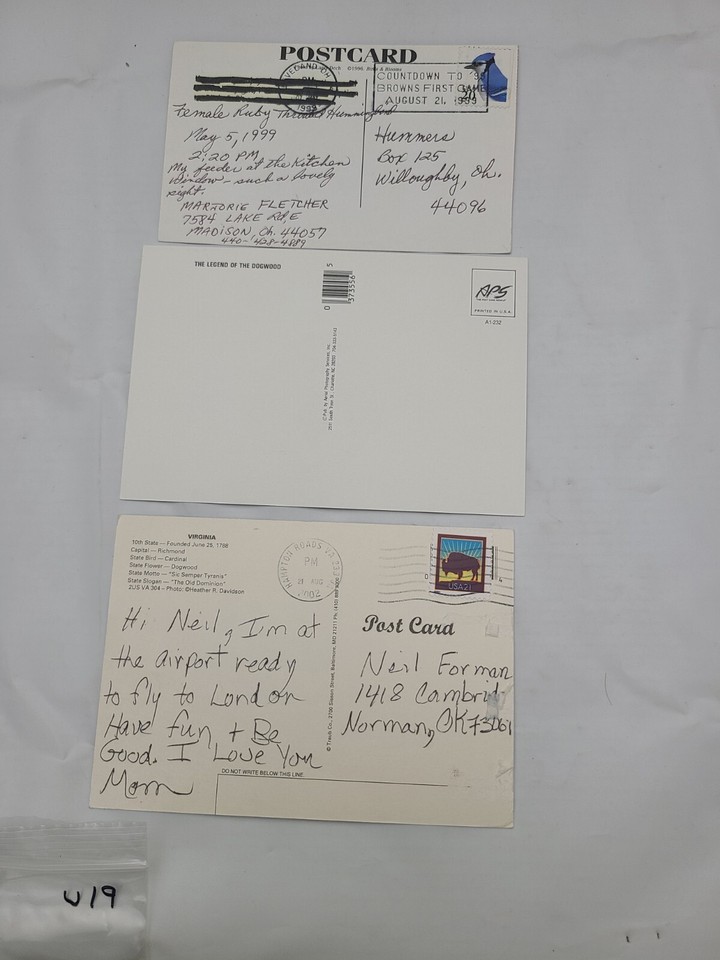 POSTCARD
©1996
PM
1999
COUNTDOWN TO '99
BROWNS FIRST GAME
AUGUST 21, 1999
20
Female Ruby Throated Hummingbird
May 5, 1999
2:20 PM
My feeder at the Kitchen
Window - such a lovely
sight.
MARJORIE FLETCHER
7584 LAKE RD, E
MADISON, Oh. 44057
440-428-4889
Hummers
Box 125
Willoughby, Oh.
44096
THE LEGEND OF THE DOGWOOD
5
0
373556
APS
PRINTED IN U.S.A.
A1-232
VIRGINIA
10th State — Founded June 25, 1788
Capital — Richmond
State Bird — Cardinal
State Flower — Dogwood
State Motto — "Sic Semper Tyranis"
State Slogan — "The Old Dominion"
2US VA 304 - Photo: ©Heather R. Davidson
HAMPTON ROADS VA
PM
21 AUG
2002
USA21
Post Card
© Traub Co., Baltimore, MD
Hi Neil, I'm at
the airport ready
to fly to London
Have fun + Be
Good. I Love You
Mom
Neil Forman
1418 Cambrid
Norman, OK 73061
DO NOT WRITE BELOW THIS LINE
U19